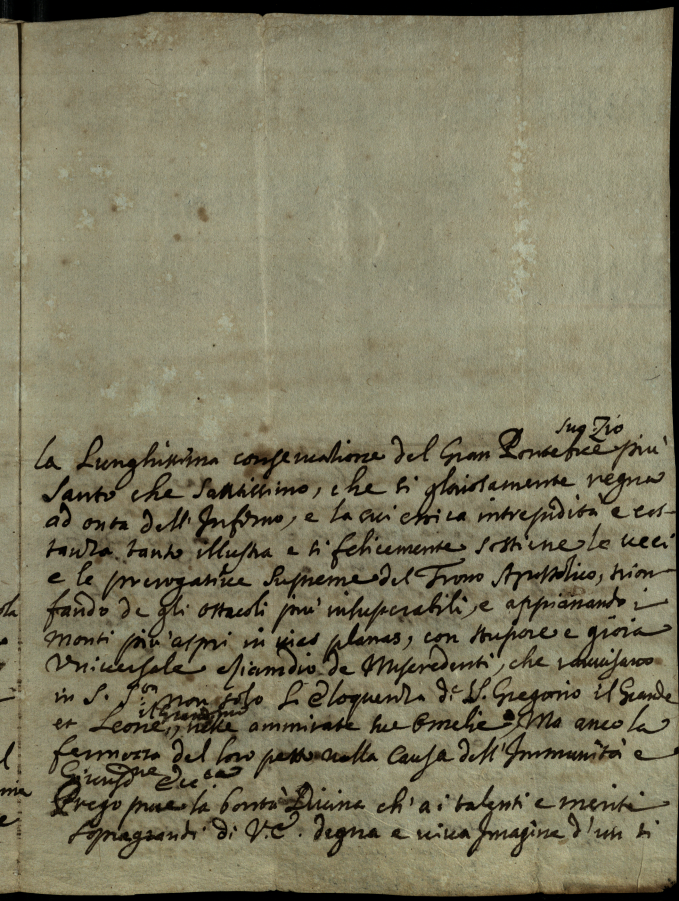 suo Zio
la Lunghissima conservatione del Gran Pontefice più
Santo che Santissimo, che sì gloriosamente regna
ad onta dell'Inferno, e la cui eroica intrepidità e cos-
tanza tanto illustra e sì felicemente sostiene le veci
e le prerogative supreme del Trono Apostolico, trion-
fando de gli ostacoli più insuperabili, e appianando i
Monti più aspri in vias planas, con stupore e gioia
Universale eziandio de Miscredenti, che ravvisano
in S. S.tà non solo L'Eloquenza di S. Gregorio il Grande
et Leone, nelle ammirate sue Omelie, Ma anco la
fermezza del loro petto nella Causa dell'Immunità e
Giurisd.ne Ecc.ca
Prego pure la bontà Divina ch'a i talenti e meriti
sopragrandi di V.E. degna e viva Imagine d'un sì